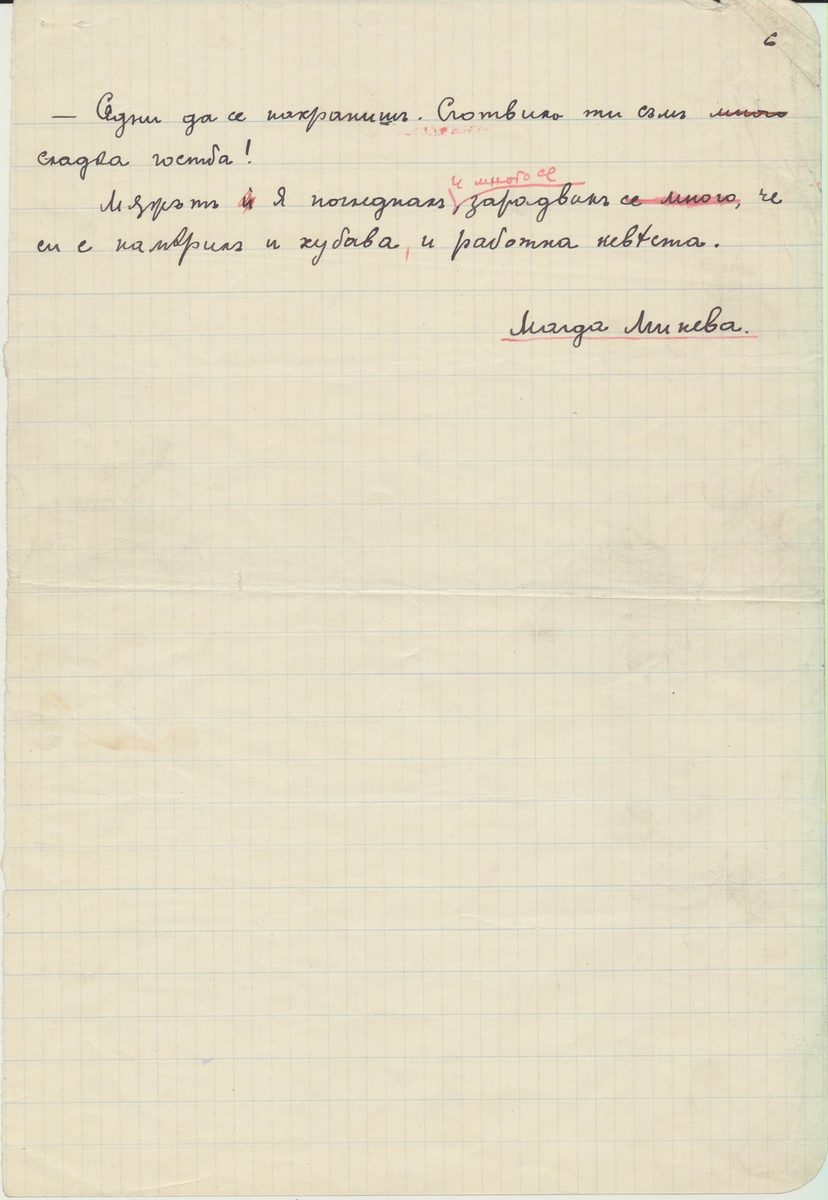 6
— Седни да се нахранишъ. Сготвила ти съмъ много
сладка гостба!
и много се
Мѫжътъ ѝ я погледналъ, зарадвалъ се много, че
си е намѣрилъ и хубава, и работна невѣста.
Магда Минева.